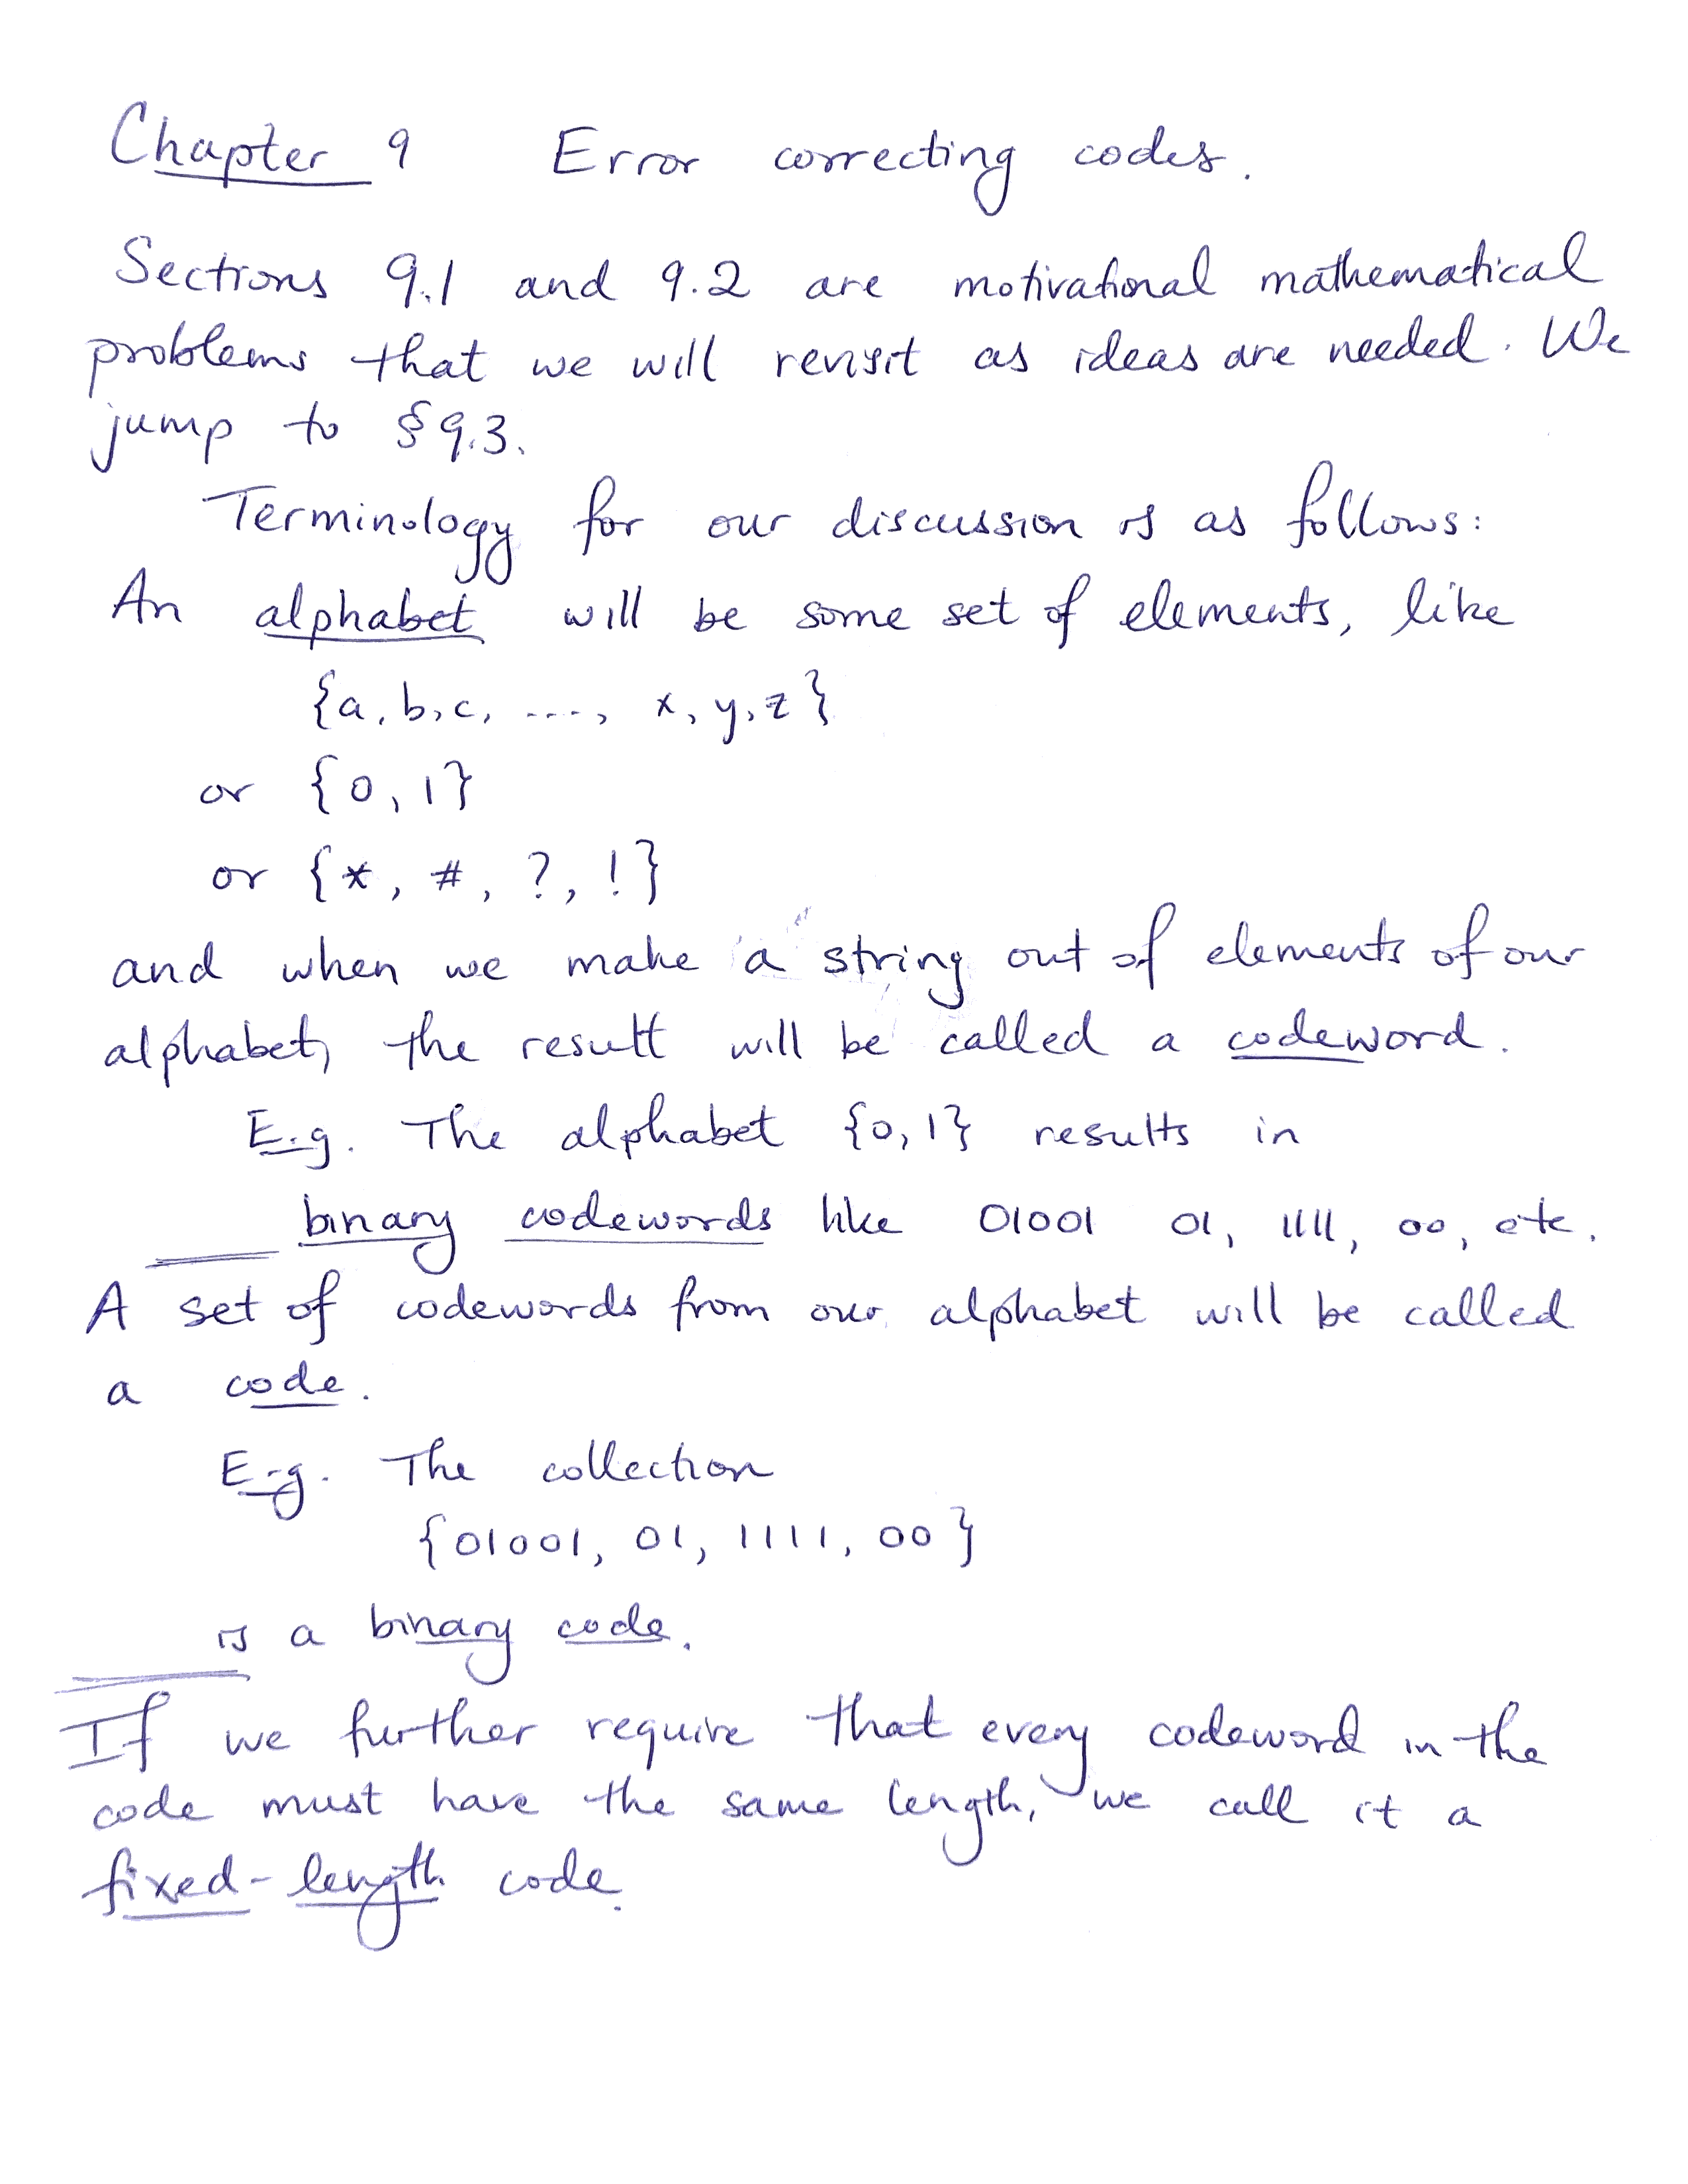 Chapter 9 Error correcting codes.
Sections 9.1 and 9.2 are motivational mathematical
problems that we will revisit as ideas are needed. We
jump to §9.3.
Terminology for our discussion is as follows:
An alphabet will be some set of elements, like
{a, b, c, ...., x, y, z}
or {0, 1}
or {*, #, ?, !}
and when we make a string out of elements of our
alphabet, the result will be called a codeword.
E.g. The alphabet {0, 1} results in
binary codewords like 01001 01, 1111, 00, etc.
A set of codewords from our alphabet will be called
a code.
E.g. The collection
{01001, 01, 1111, 00}
is a binary code.
If we further require that every codeword in the
code must have the same length, we call it a
fixed-length code.